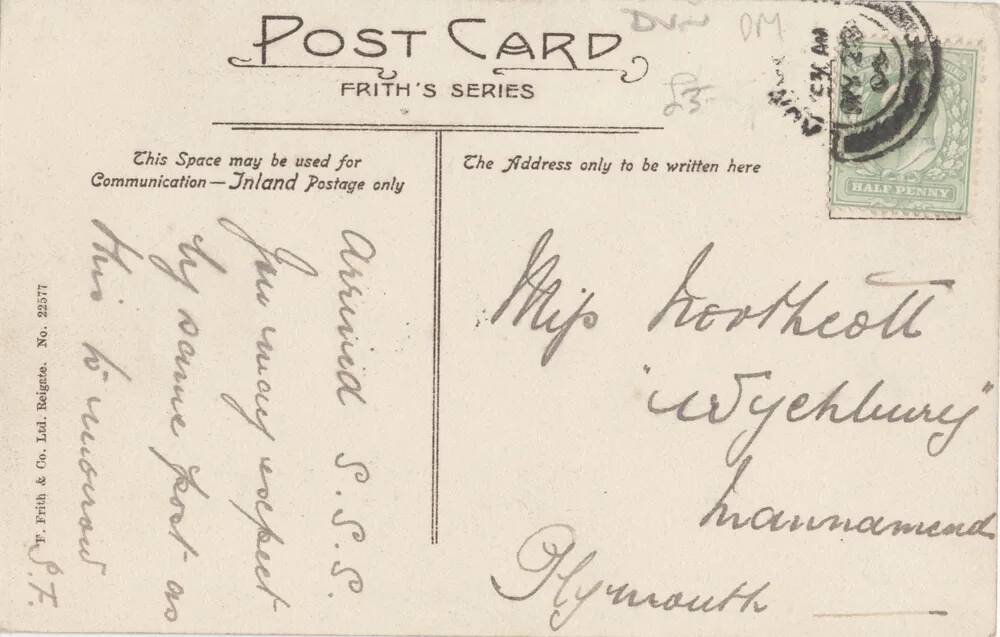 POST CARD
FRITH'S SERIES
DM
£5
HALF PENNY
This Space may be used for
Communication — Inland Postage only
The Address only to be written here
Arrived S.S.S.
You may expect
by same post as
this to morrow
S.F.
Miss Northcott
"Wychbury"
Mannamead
Plymouth
F. Frith & Co. Ltd. Reigate. No. 22577